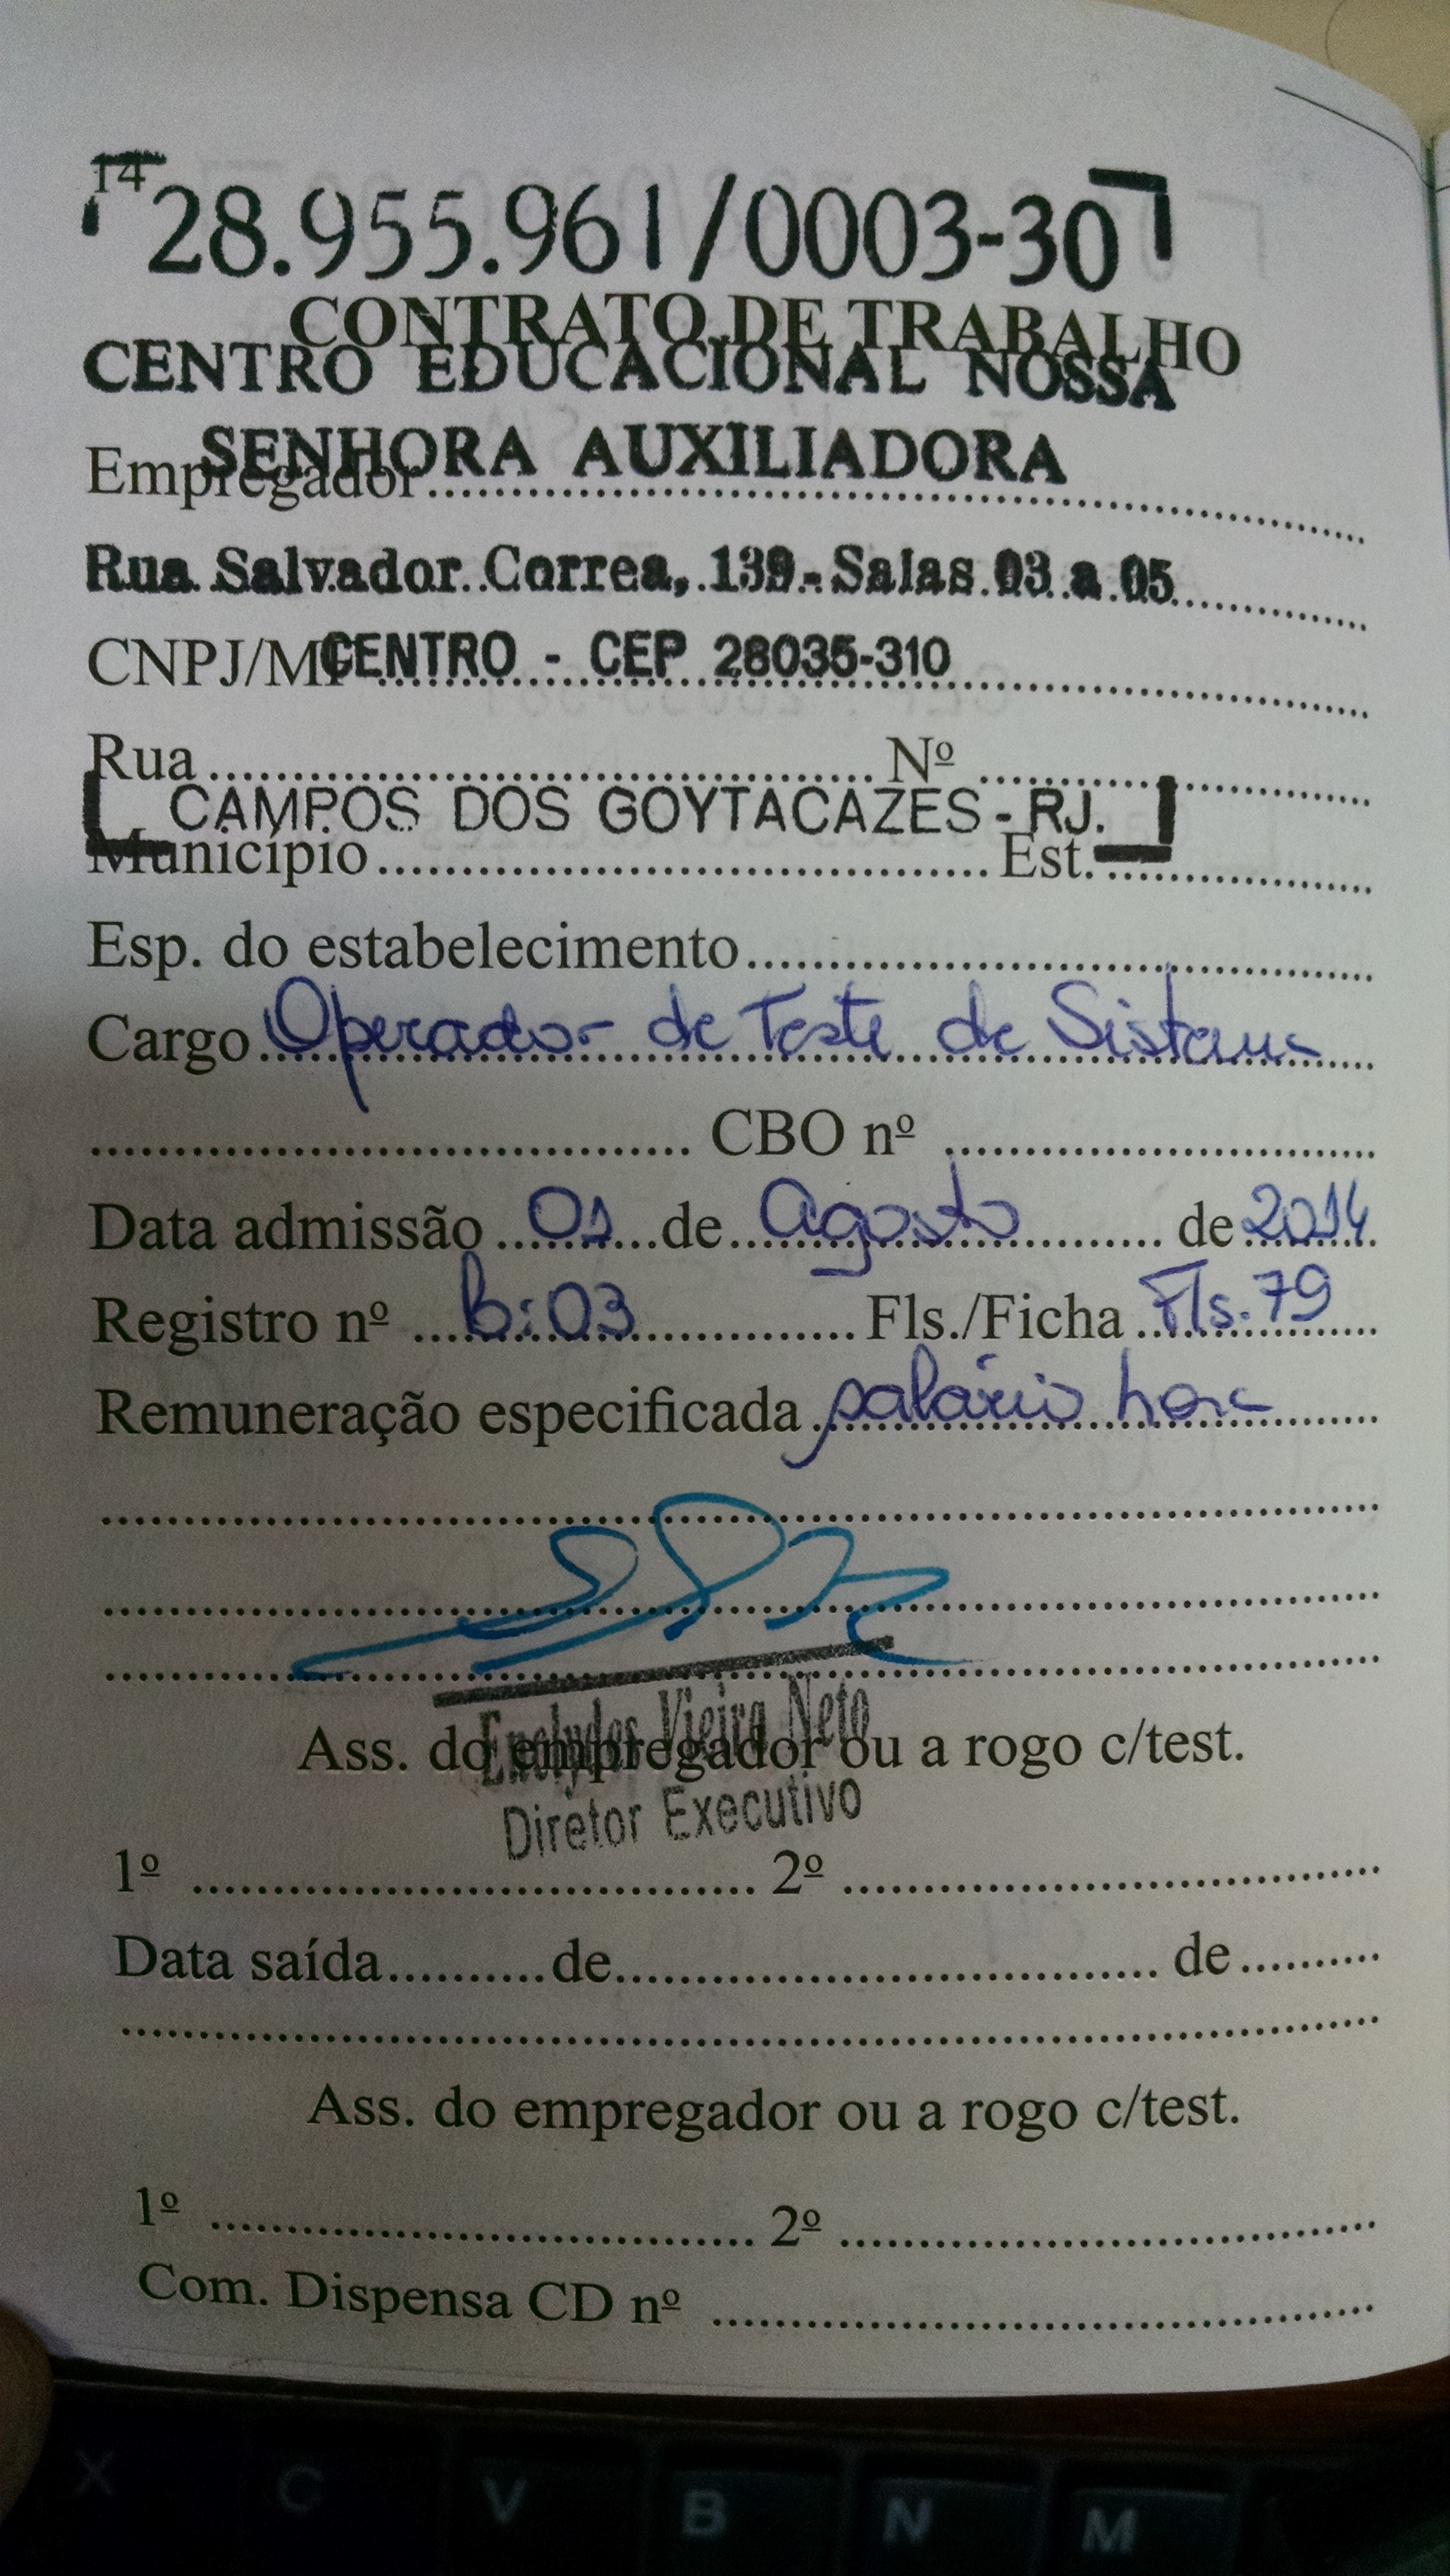 14
28.955.961/0003-30
CONTRATO DE TRABALHO
CENTRO EDUCACIONAL NOSSA
SENHORA AUXILIADORA
Empregador
Rua Salvador Correa, 139 - Salas 03 a 05
CNPJ/MF CENTRO - CEP 28035-310
Rua Nº
CAMPOS DOS GOYTACAZES - RJ.
Município Est.
Esp. do estabelecimento
Cargo Operador de Teste de Sistemas
CBO nº
Data admissão 01 de agosto de 2014
Registro nº B:03 Fls./Ficha Fls. 79
Remuneração especificada salário hora
Euclydes Vieira Neto
Ass. do empregador ou a rogo c/test.
Diretor Executivo
1º 2º
Data saída de de
Ass. do empregador ou a rogo c/test.
1º 2º
Com. Dispensa CD nº
X C V B N M